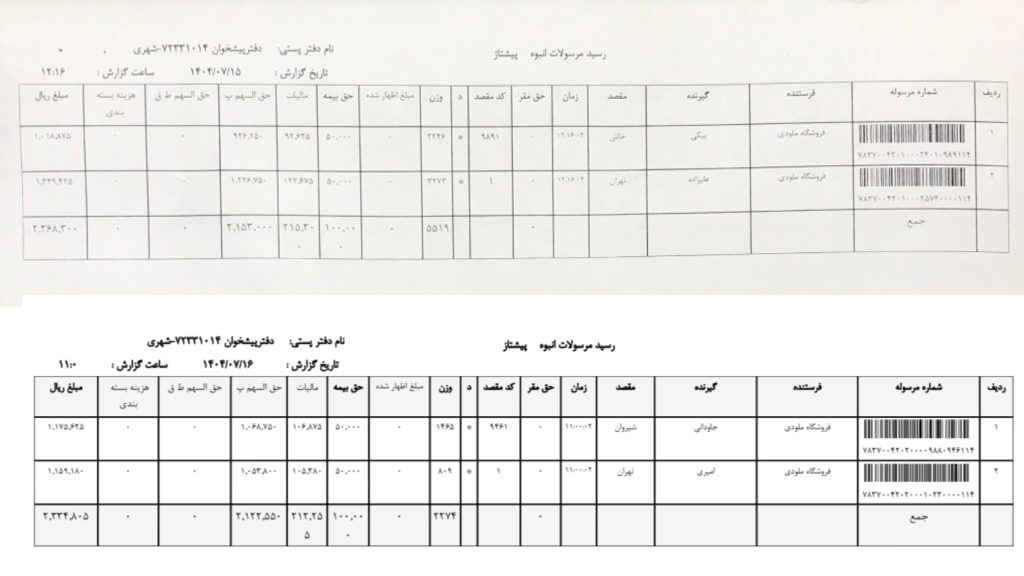 رسید مرسولات انبوه پیشتاز
نام دفتر پستی: دفترپیشخوان ۷۲۳۳۱۰۱۴-شهری
تاریخ گزارش : ۱۴۰۴/۰۷/۱۵ ساعت گزارش : ۱۲:۱۶
ردیف شماره مرسوله فرستنده گیرنده مقصد زمان حق مقر کد مقصد د وزن مبلغ اظهار شده حق بیمه مالیات حق السهم پ حق السهم ط ق هزینه بسته بندی مبلغ ریال
۱ فروشگاه ملودی بیکی خاش ۱۲:۱۶:۰۲ ۰ ۹۸۹۱ * ۲۲۴۶ ۰ ۵۰,۰۰۰ ۹۲,۶۲۵ ۹۲۶,۲۵۰ ۰ ۰ ۱,۰۱۸,۸۷۵
۷۸۳۷۰۰۴۲۰۱۰۰۰۲۴۰۱۰۹۸۹۱۱۴
۲ فروشگاه ملودی علیزاده تهران ۱۲:۱۶:۰۲ ۰ ۱ * ۳۲۷۳ ۰ ۵۰,۰۰۰ ۱۲۲,۶۷۵ ۱,۲۲۶,۷۵۰ ۰ ۰ ۱,۳۴۹,۴۲۵
۷۸۳۷۰۰۴۲۰۱۰۰۰۲۵۷۴۰۰۰۰۱۱۴
جمع ۰ ۵۵۱۹ ۰ ۱۰۰,۰۰۰ ۲۱۵,۳۰۰ ۲,۱۵۳,۰۰۰ ۰ ۰ ۲,۳۶۸,۳۰۰
رسید مرسولات انبوه پیشتاز
نام دفتر پستی: دفترپیشخوان ۷۲۳۳۱۰۱۴-شهری
تاریخ گزارش : ۱۴۰۴/۰۷/۱۶ ساعت گزارش : ۱۱:۰
ردیف شماره مرسوله فرستنده گیرنده مقصد زمان حق مقر کد مقصد د وزن مبلغ اظهار شده حق بیمه مالیات حق السهم پ حق السهم ط ق هزینه بسته بندی مبلغ ریال
۱ فروشگاه ملودی جاودانی شیروان ۱۱:۰۰:۰۲ ۰ ۹۴۶۱ * ۱۴۶۵ ۰ ۵۰,۰۰۰ ۱۰۶,۸۷۵ ۱,۰۶۸,۷۵۰ ۰ ۰ ۱,۱۷۵,۶۲۵
۷۸۳۷۰۰۴۲۰۲۰۰۰۰۹۸۸۰۹۴۶۱۱۴
۲ فروشگاه ملودی امیری تهران ۱۱:۰۰:۰۲ ۰ ۱ * ۸۰۹ ۰ ۵۰,۰۰۰ ۱۰۵,۳۸۰ ۱,۰۵۳,۸۰۰ ۰ ۰ ۱,۱۵۹,۱۸۰
۷۸۳۷۰۰۴۲۰۲۰۰۰۱۰۲۳۰۰۰۰۱۱۴
جمع ۰ ۲۲۷۴ ۰ ۱۰۰,۰۰۰ ۲۱۲,۲۵۵ ۲,۱۲۲,۵۵۰ ۰ ۰ ۲,۳۳۴,۸۰۵